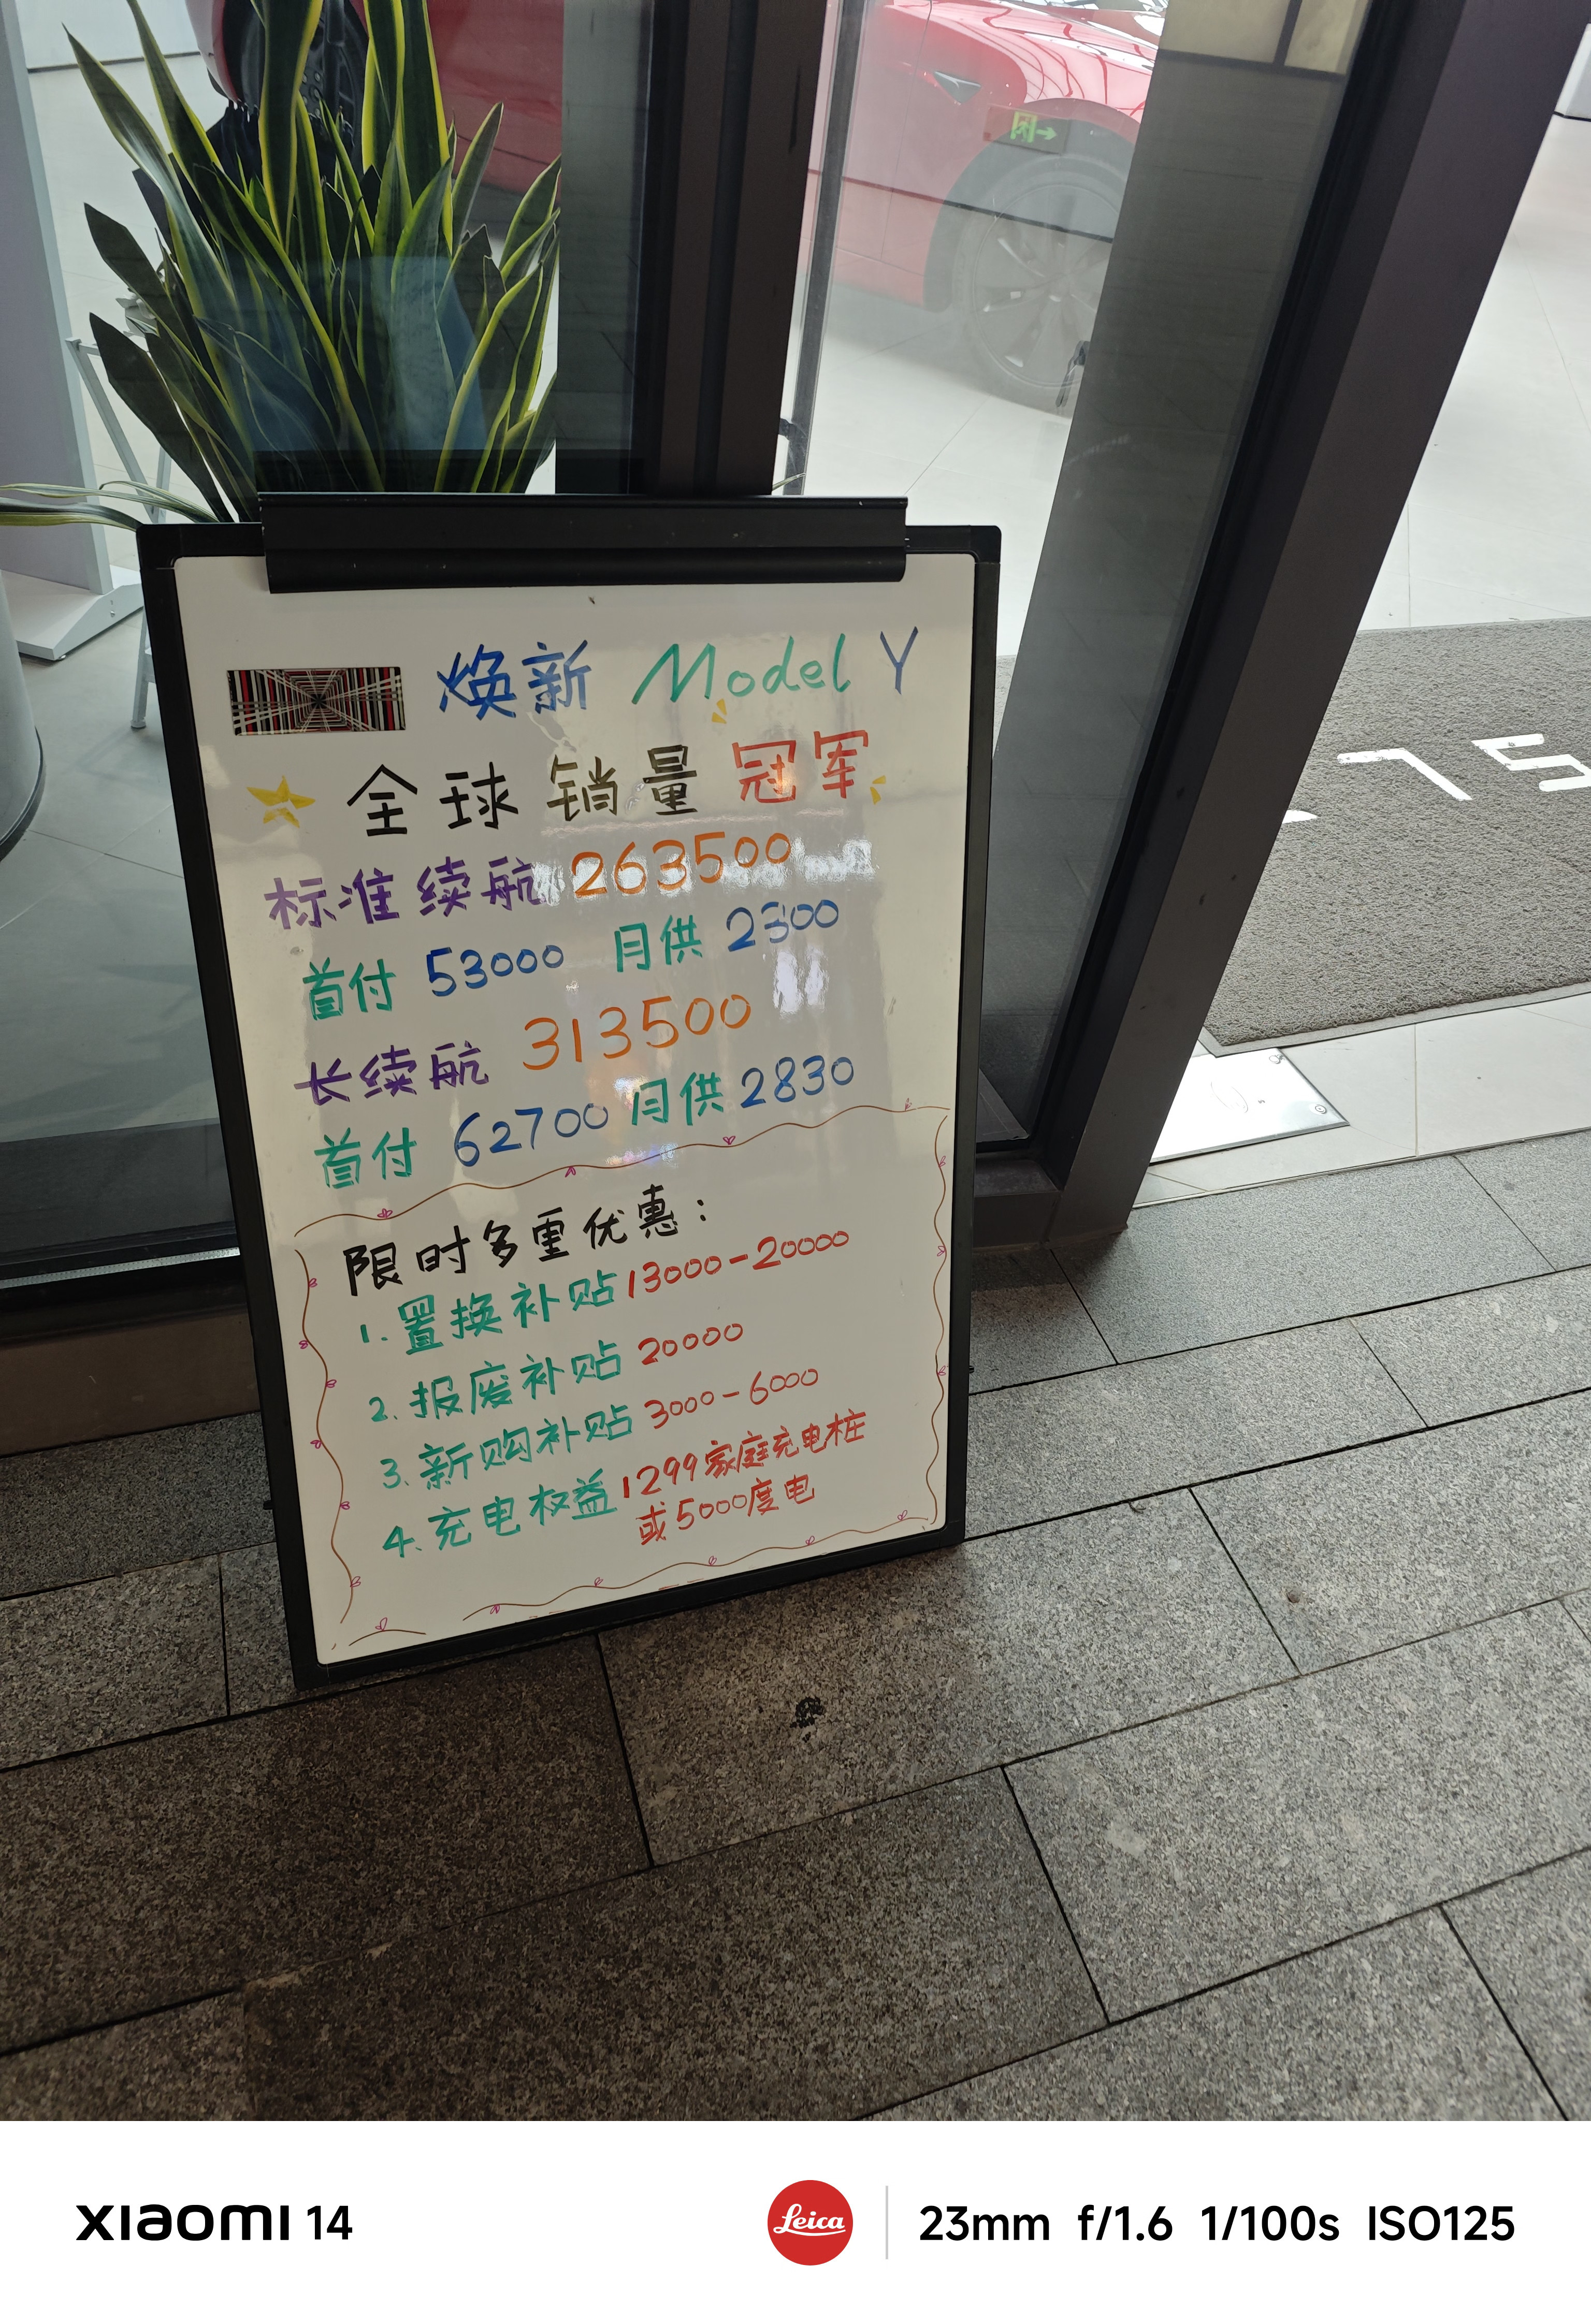 焕新 Model Y
全球销量冠军
标准续航 263500
首付 53000 月供 2300
长续航 313500
首付 62700 月供 2830
限时多重优惠：
1. 置换补贴 13000-20000
2. 报废补贴 20000
3. 新购补贴 3000-6000
4. 充电权益 1299家庭充电桩
或5000度电
XIAOMI 14
Leica
23mm f/1.6 1/100s ISO125